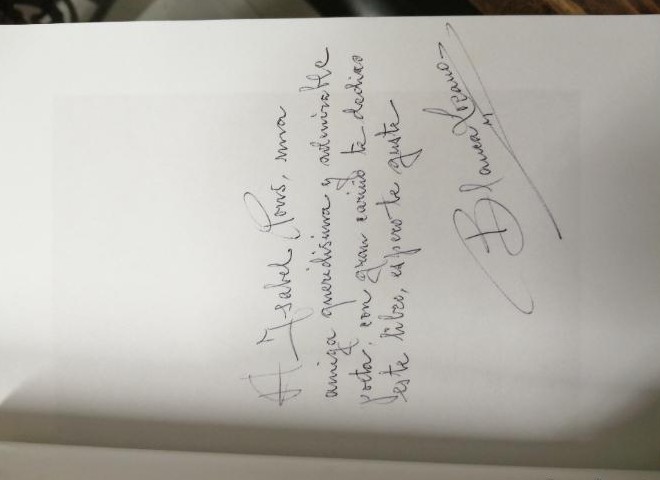 A Isabel Pons, una
amiga queridisima y admirable
poeta, con gran cariño te dedico
este libro, espero te guste
Blanca Lozano